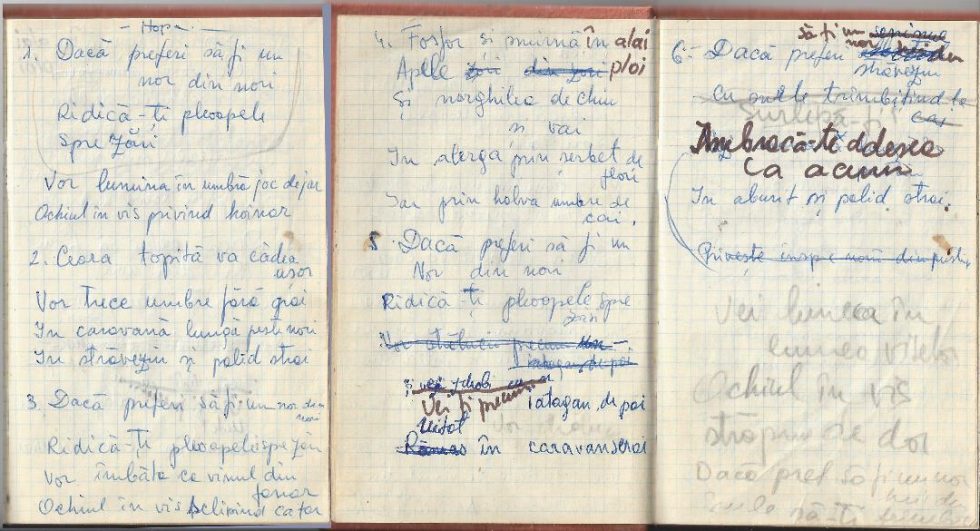 1. Dacă preferi să fi un
nor din nori
Ridică-ți pleoapele
spre zări
Vor lumina în umbră joc de jar
Ochiul în vis privind hoinar
2. Ceara topită va cădea
ușor
Vor trece umbre fără grai
In caravană lungă peste nori
In străveziu și palid strai
3. Dacă preferi să fi un nor din
nori
Ridică-ți pleoapele spre zări
Vor îmbăta ca vinul din
Ochiul în vis sclipind ca far
4. Fosfor și smirnă în alai
Apele ploi
Și narghilea de chin
și vai
In alerga prin serbet de
flori
Iar prin holva umbre de
cai.
5. Dacă preferi să fi un
Nor din nori
Ridică-ți pleoapele spre
zări
Vei fi precum iatagan de pai
Uitat
Rămas în caravanserai
6. Dacă preferi să fi un
nor
străveziu
Imbracă-te adesea
Ca acum
In aburit și palid strai.
Privește înspre
Vei luneca în
lumea viselor
Ochiul în vis
străpuns de dor
Dacă pref să fi un nor